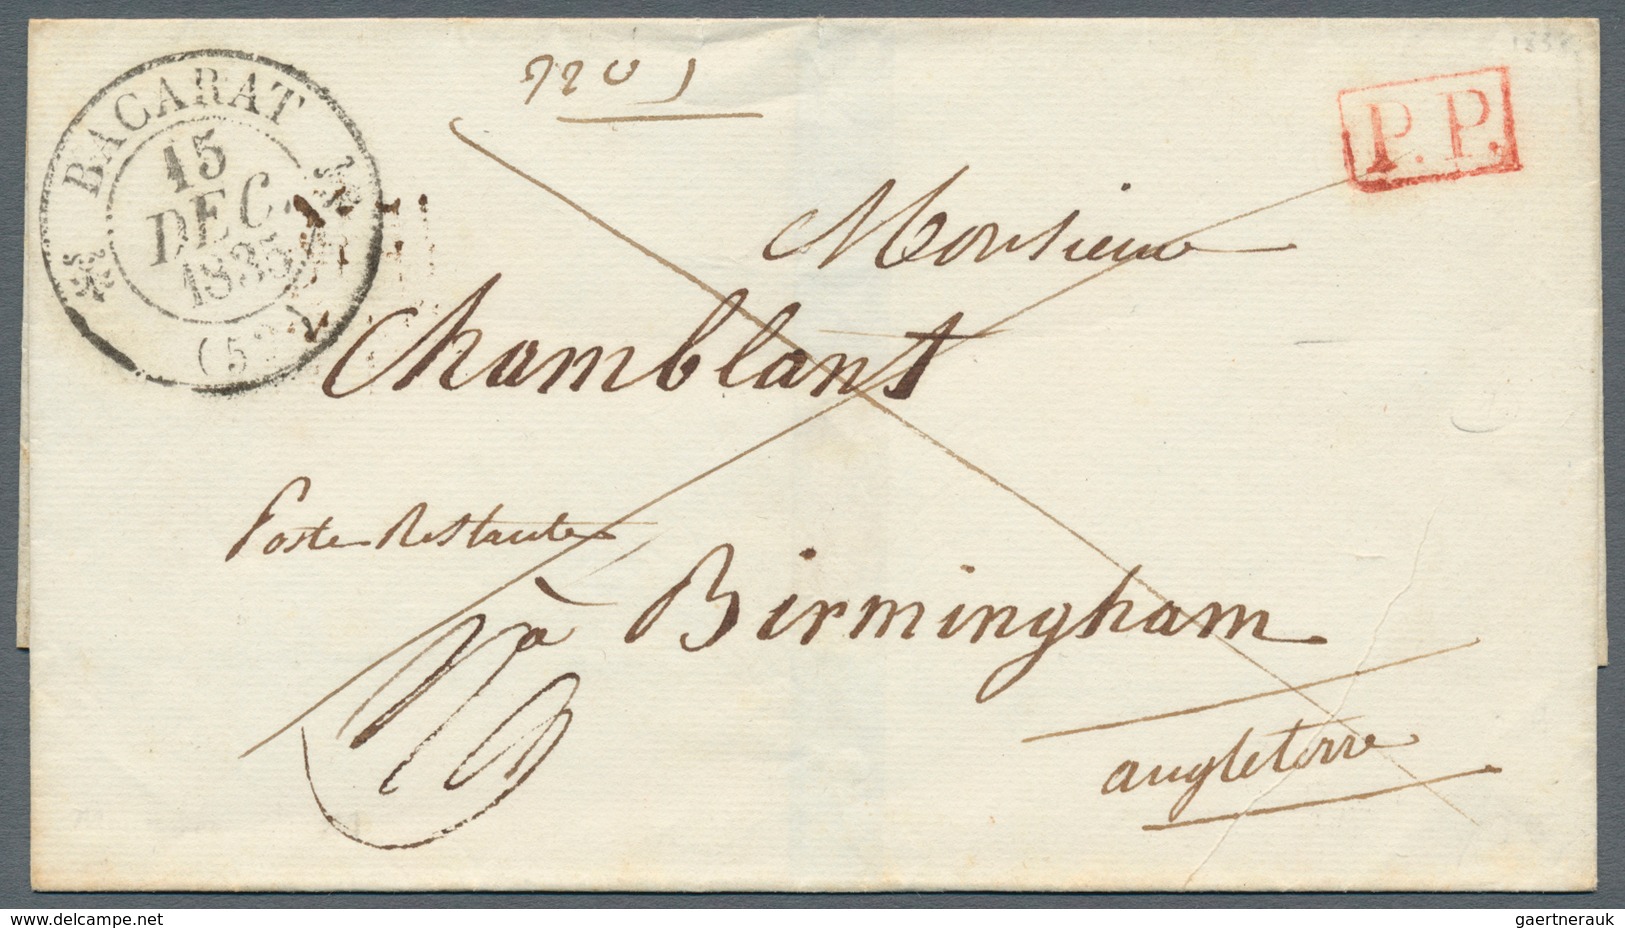 BACARAT
15
DEC.
1835
(52)
P.P.
Monsieur
Chamblant
Poste Restante
à Birmingham
angleterre
delcampe.net
gaertnerauk